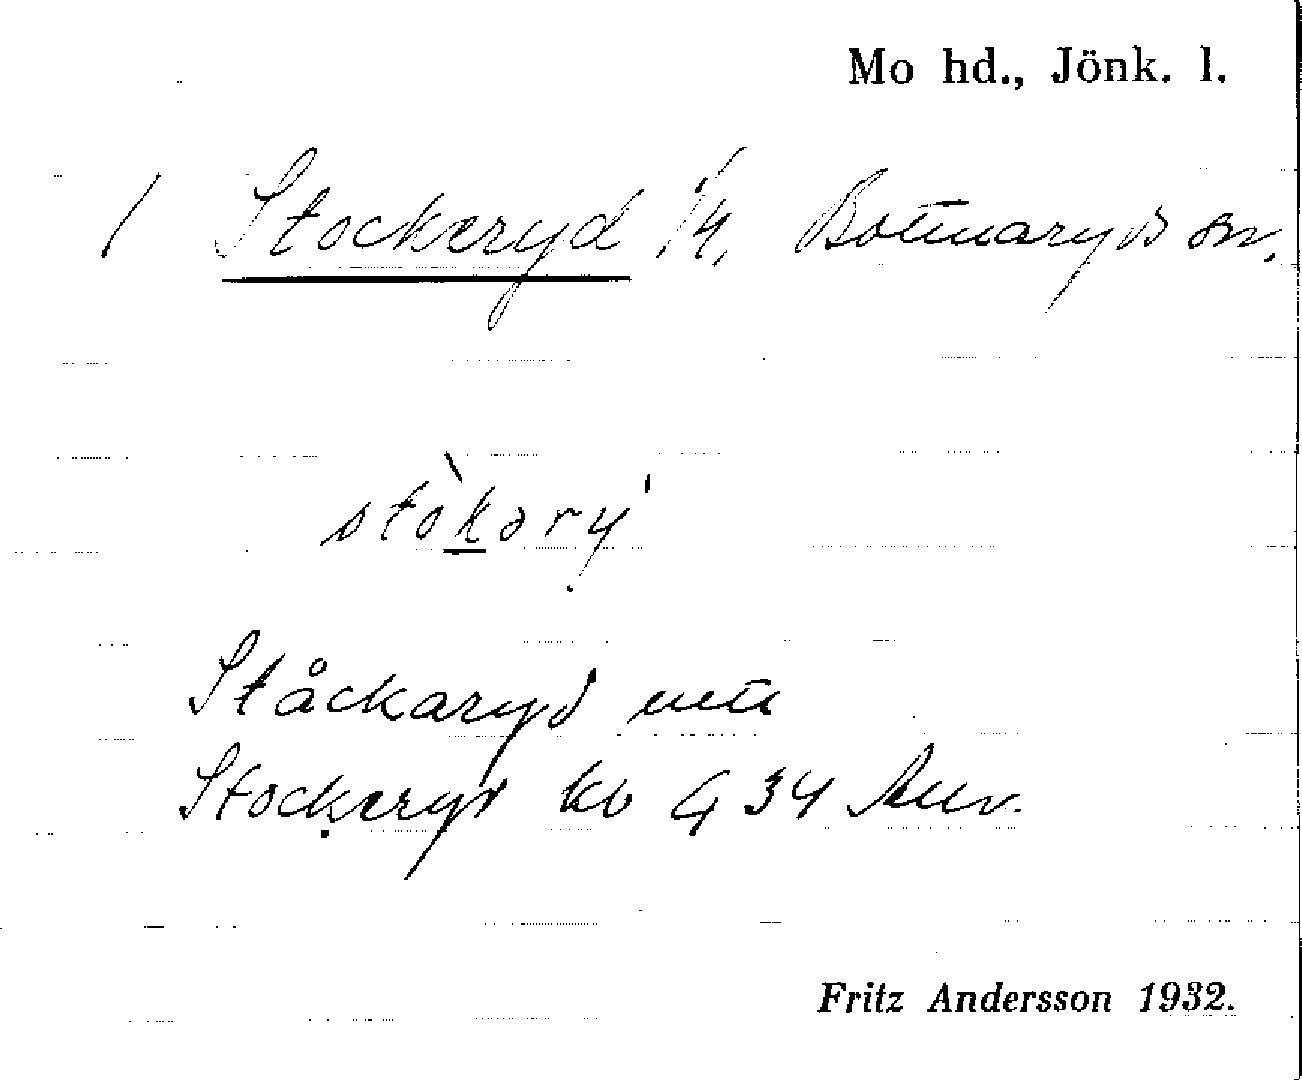 Mo hd., Jönk. l.
/ Stockeryd 1/4, Bottnaryds sn.
stòkəry̍
Ståckaryd
Stockeryd kb G 34 Anv.
Fritz Andersson 1932.